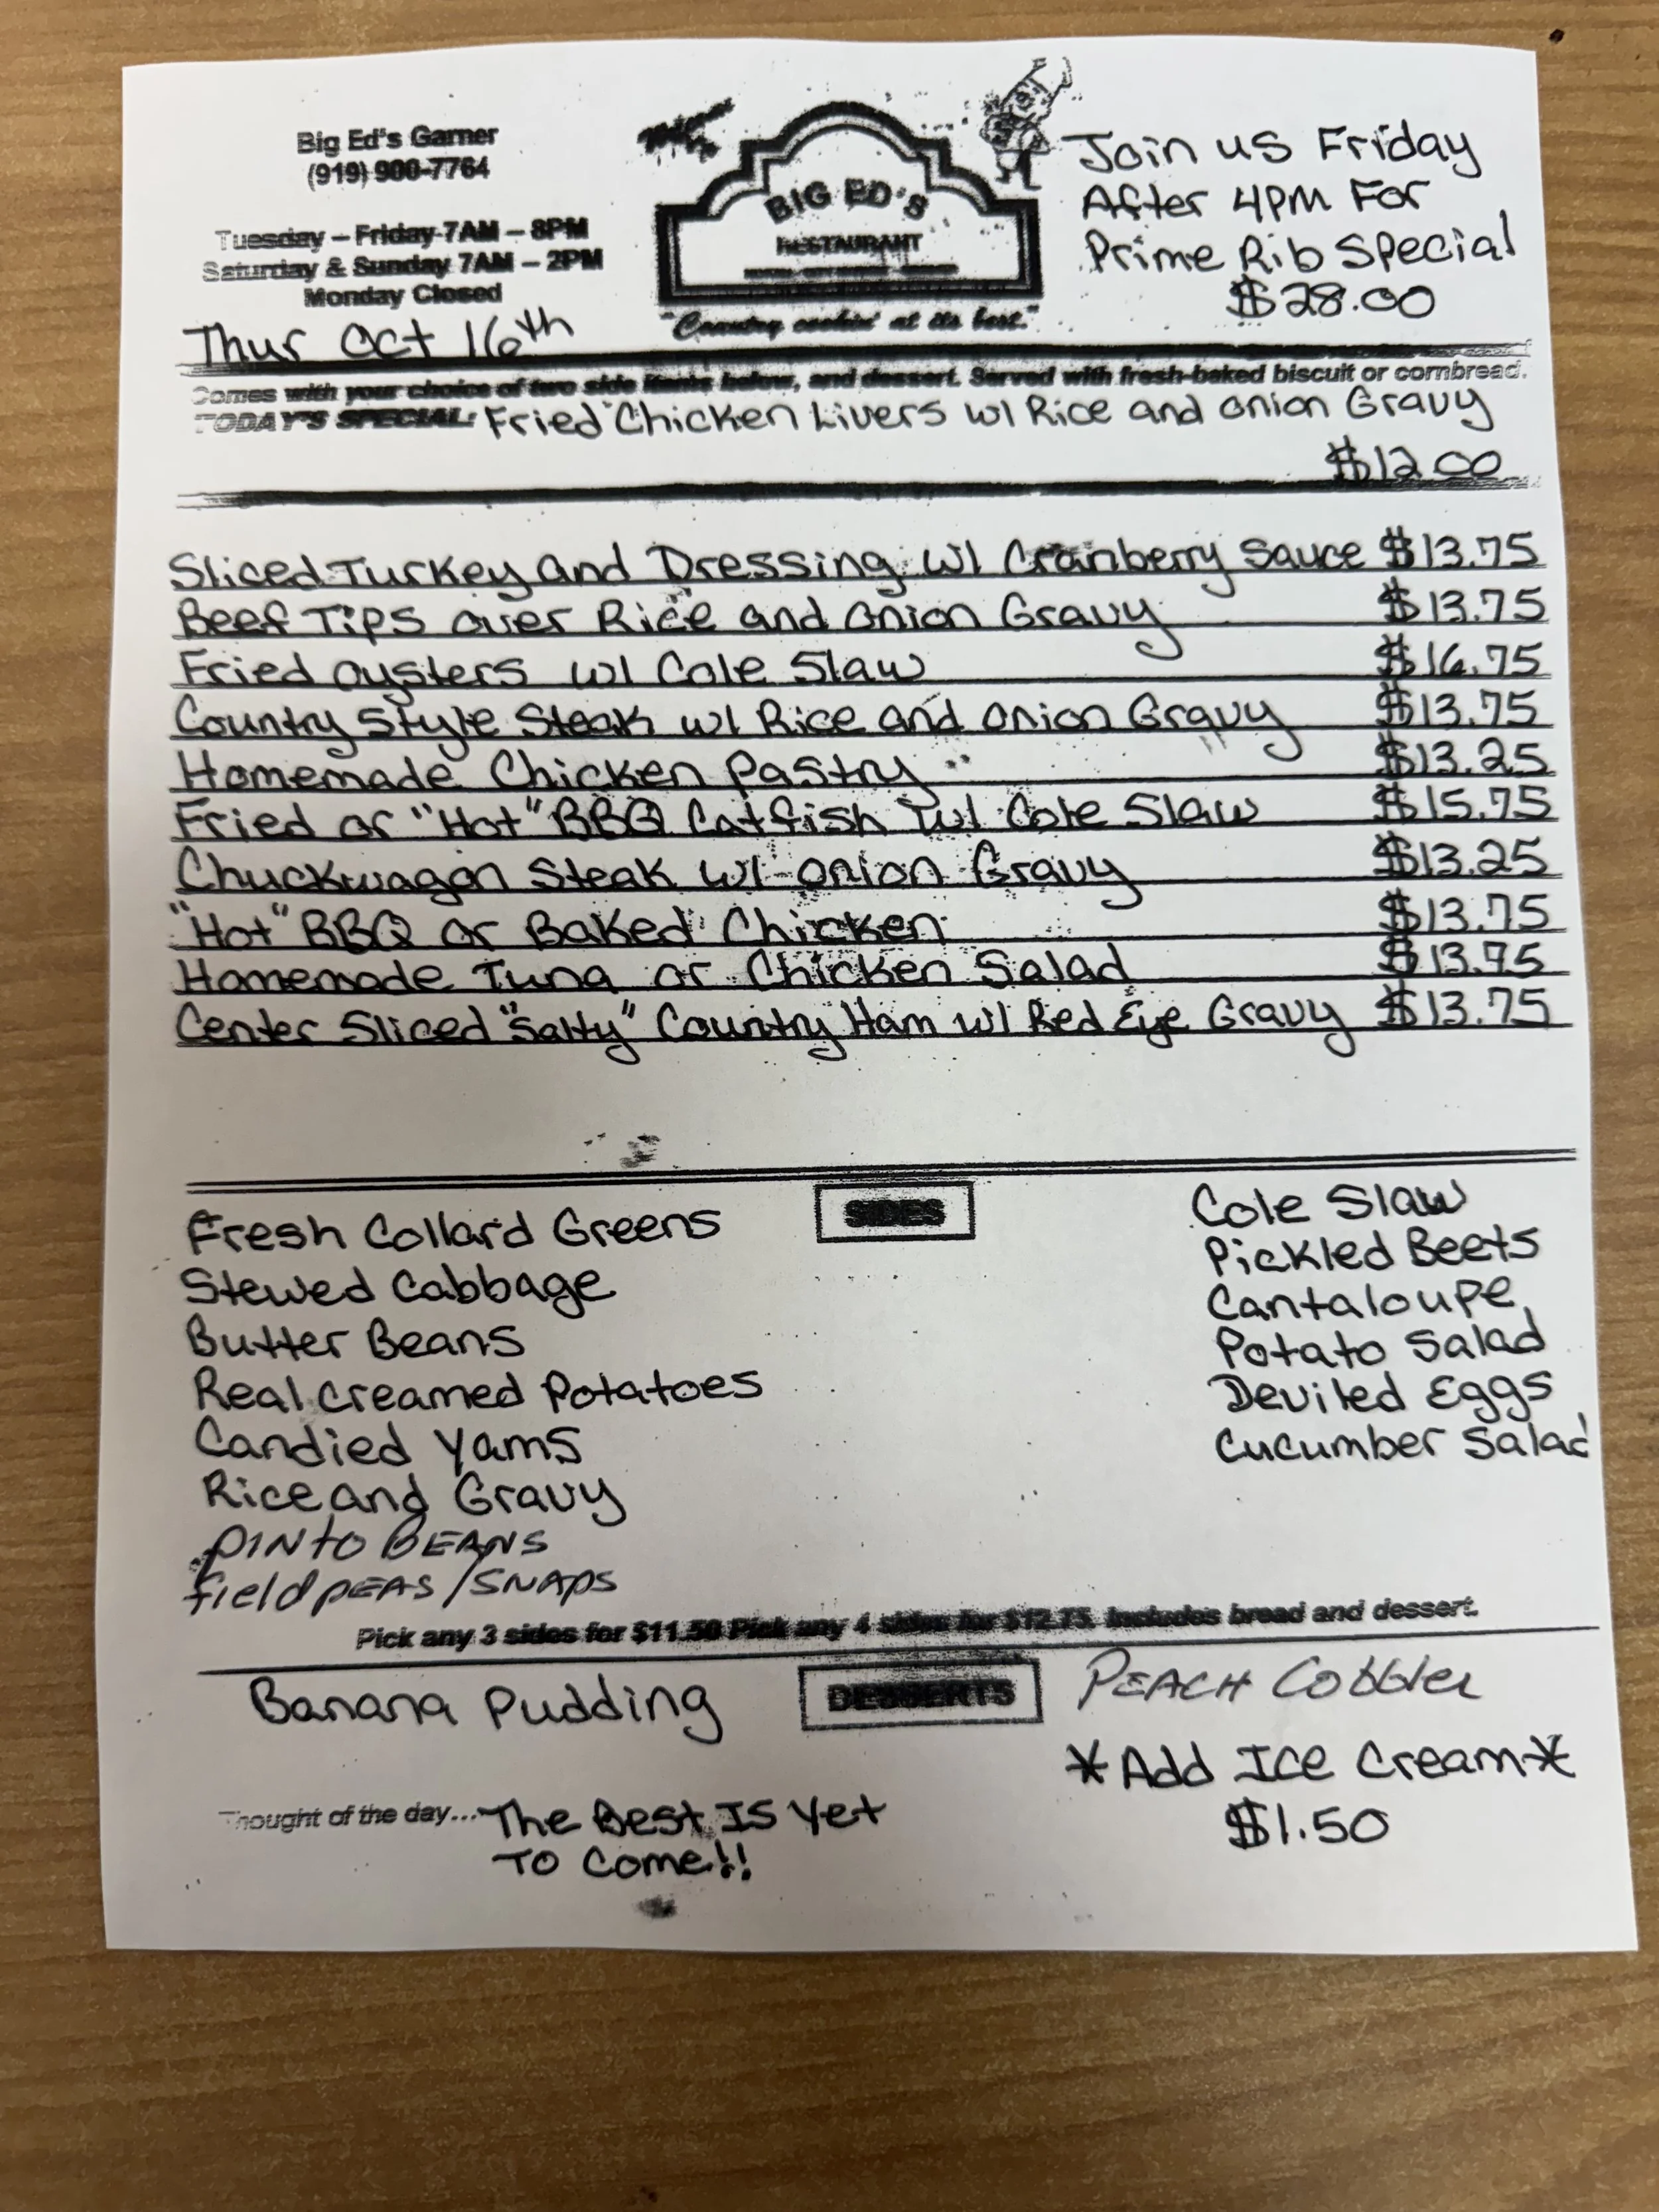 Big Ed's Garner
(919) 900-7764
Tuesday – Friday 7AM – 8PM
Saturday & Sunday 7AM – 2PM
Monday Closed
Thur Oct 16th
BIG ED'S
RESTAURANT
"Country cookin' at its best."
Join us Friday
After 4PM For
Prime Rib Special
$28.00
Comes with your choice of two side items below, and dessert. Served with fresh-baked biscuit or cornbread.
TODAY'S SPECIAL: Fried Chicken Livers w/ Rice and Onion Gravy
$12.00
Sliced Turkey and Dressing w/ Cranberry Sauce $13.75
Beef Tips over Rice and Onion Gravy $13.75
Fried Oysters w/ Cole Slaw $16.75
Country Style Steak w/ Rice and Onion Gravy $13.75
Homemade Chicken Pastry $13.25
Fried or "Hot" BBQ Catfish w/ Cole Slaw $15.75
Chuckwagon Steak w/ Onion Gravy $13.25
"Hot" BBQ or Baked Chicken $13.75
Homemade Tuna or Chicken Salad $13.95
Center Sliced "Salty" Country Ham w/ Red Eye Gravy $13.75
SIDES
Fresh Collard Greens
Stewed Cabbage
Butter Beans
Real Creamed Potatoes
Candied Yams
Rice and Gravy
PINTO BEANS
field PEAS/SNAPS
Cole Slaw
Pickled Beets
Cantaloupe
Potato Salad
Deviled Eggs
Cucumber Salad
Pick any 3 sides for $11.50 Pick any 4 sides for $12.75. Includes bread and dessert.
DESSERTS
Banana Pudding
PEACH Cobbler
*Add Ice Cream*
$1.50
Thought of the day... The Best Is Yet
To Come!!